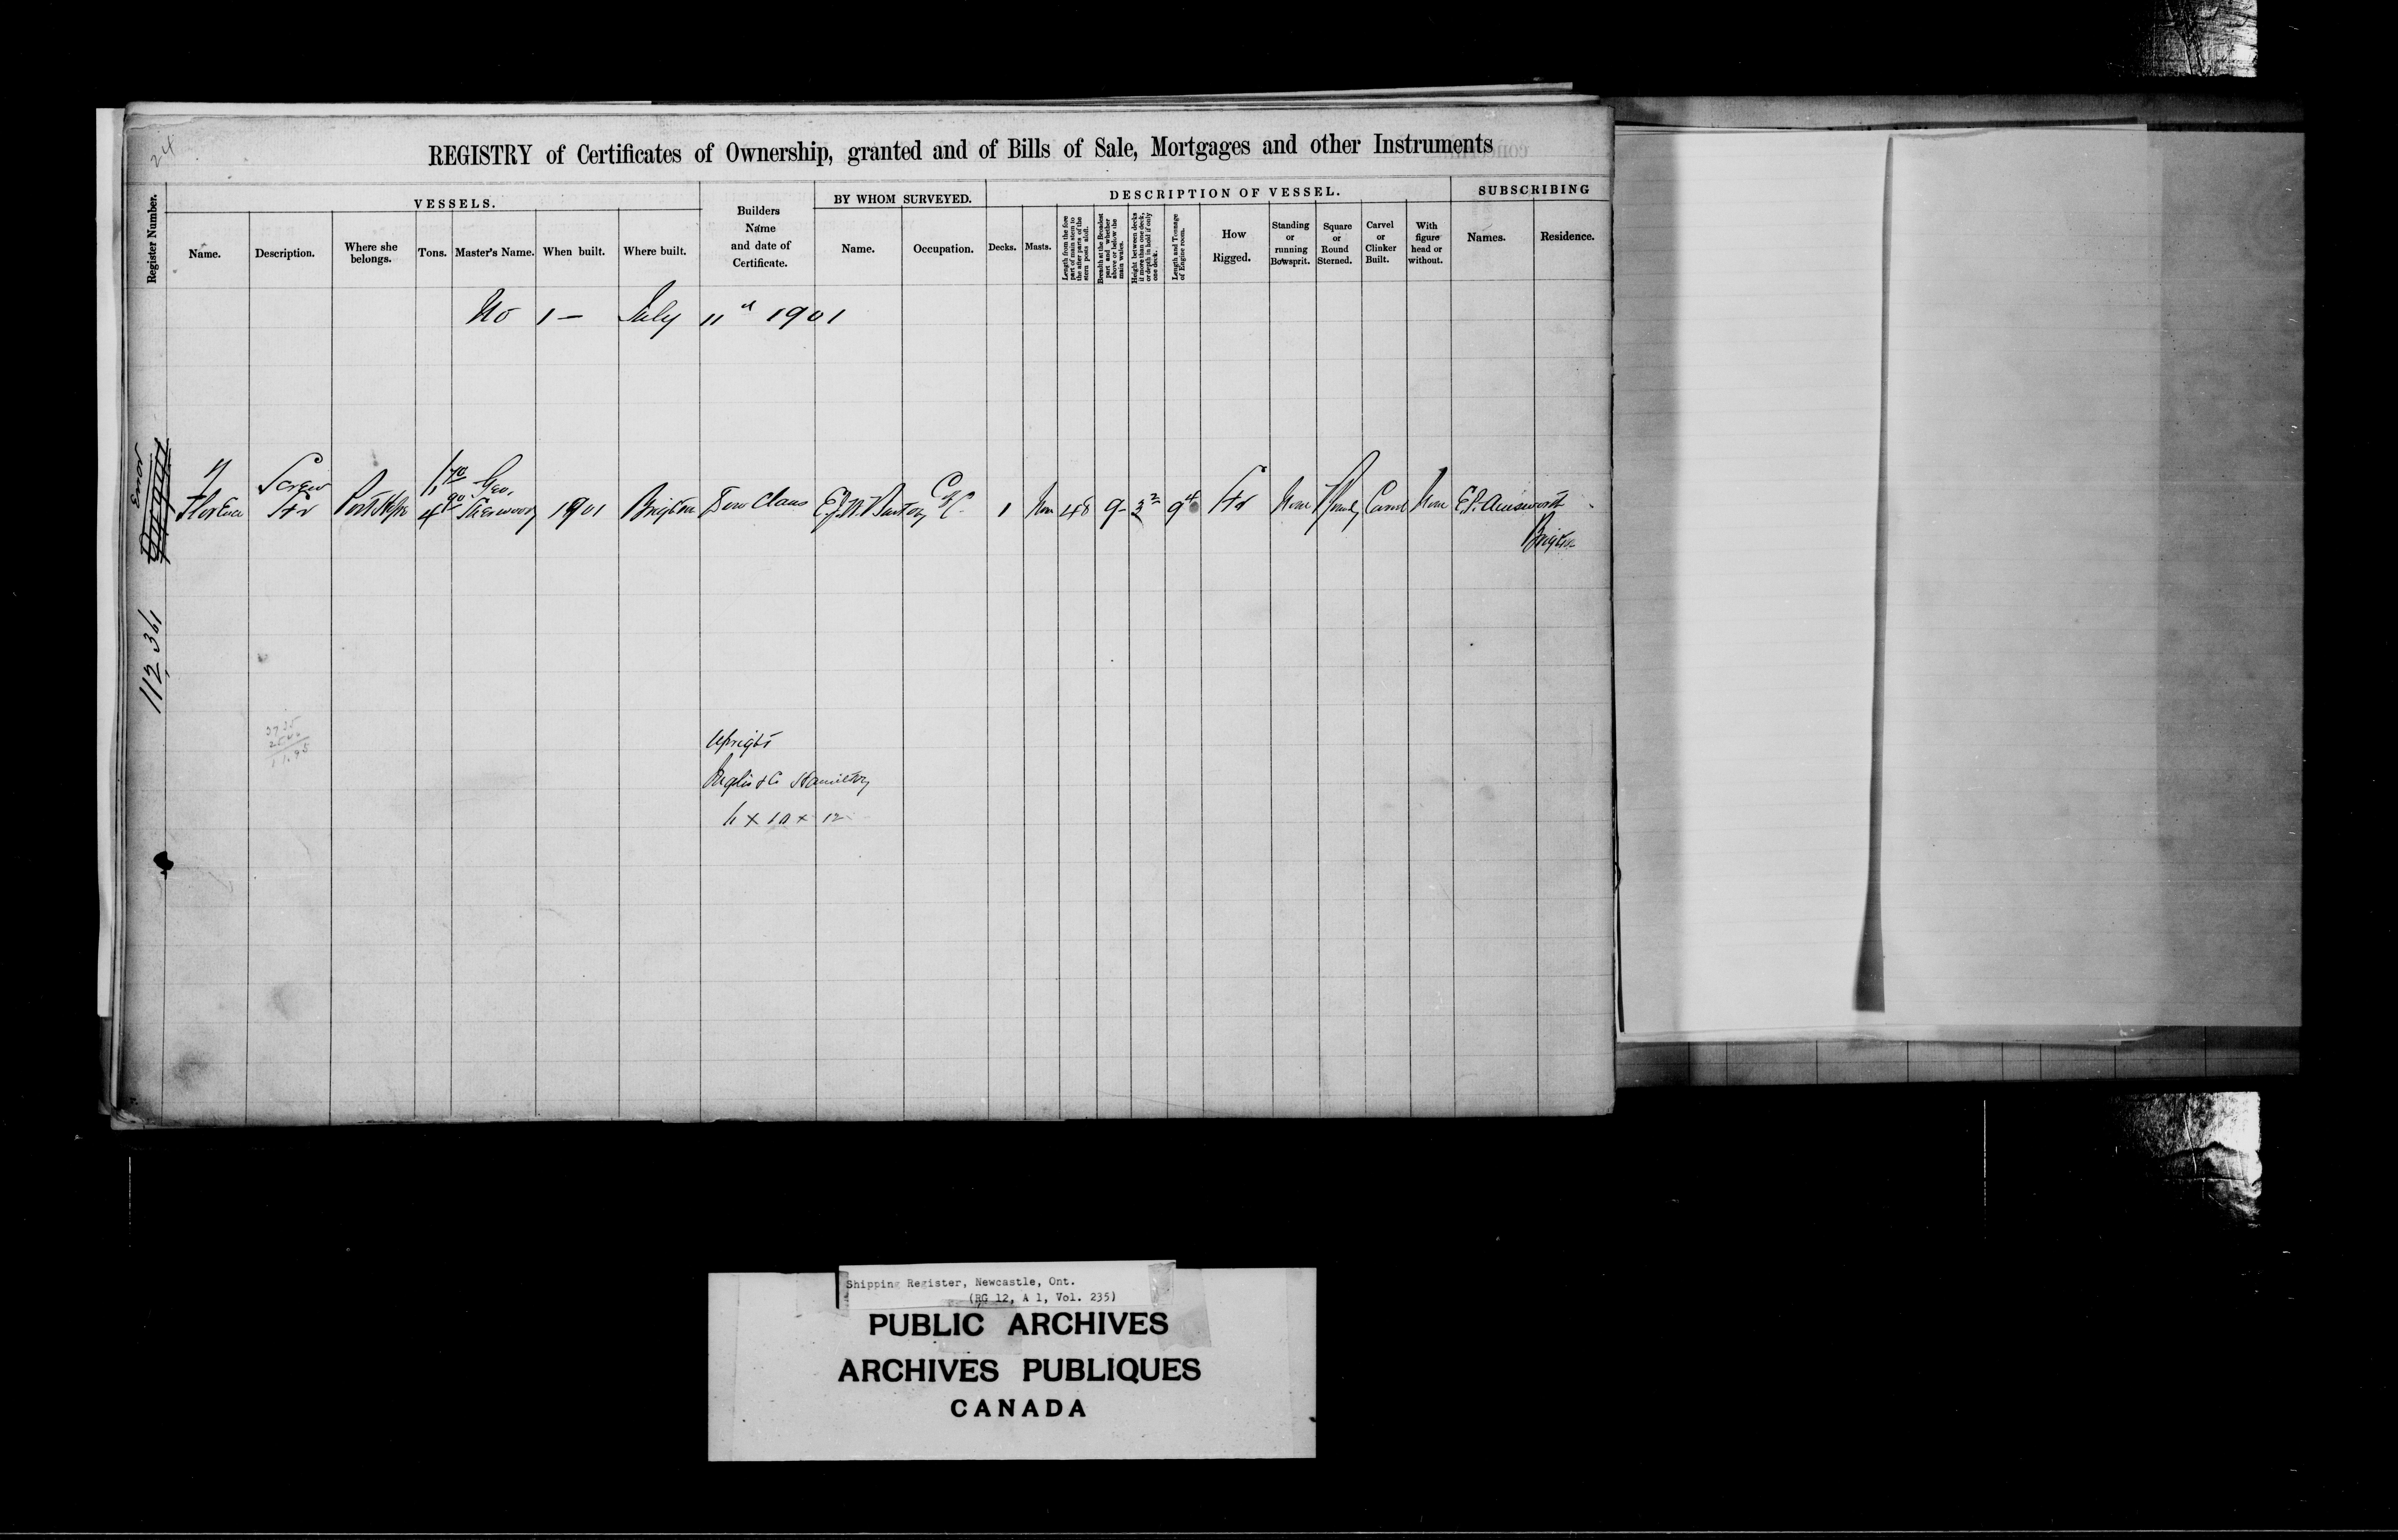 24
REGISTRY of Certificates of Ownership, granted and of Bills of Sale, Mortgages and other Instruments
Register Number.
VESSELS.
Name.
Description.
Where she belongs.
Tons.
Master's Name.
When built.
Where built.
Builders Name and date of Certificate.
BY WHOM SURVEYED.
Name.
Occupation.
DESCRIPTION OF VESSEL.
Decks.
Masts.
Length from the fore part of main stem to the after parts of the stern posts aloft.
Breadth at the Broadest part and whether above or below the main wales.
Height between decks if more than one deck, or depth in hold if only one deck.
Length and Tonnage of Engine room.
How Rigged.
Standing or running Bowsprit.
Square or Round Sterned.
Carvel or Clinker Built.
With figure head or without.
SUBSCRIBING
Names.
Residence.
No 1 - July 11th 1901
Error
112,361
Florence
Screw
Str
Port Hope
Geo.
Sherwood
1901
Brighton
1
48
9
Str
None
None
E.P. Ainsworth
Brighton
Upright
Inglis & Co Hamilton
Shipping Register, Newcastle, Ont.
(RG 12, A 1, Vol. 235)
PUBLIC ARCHIVES
ARCHIVES PUBLIQUES
CANADA